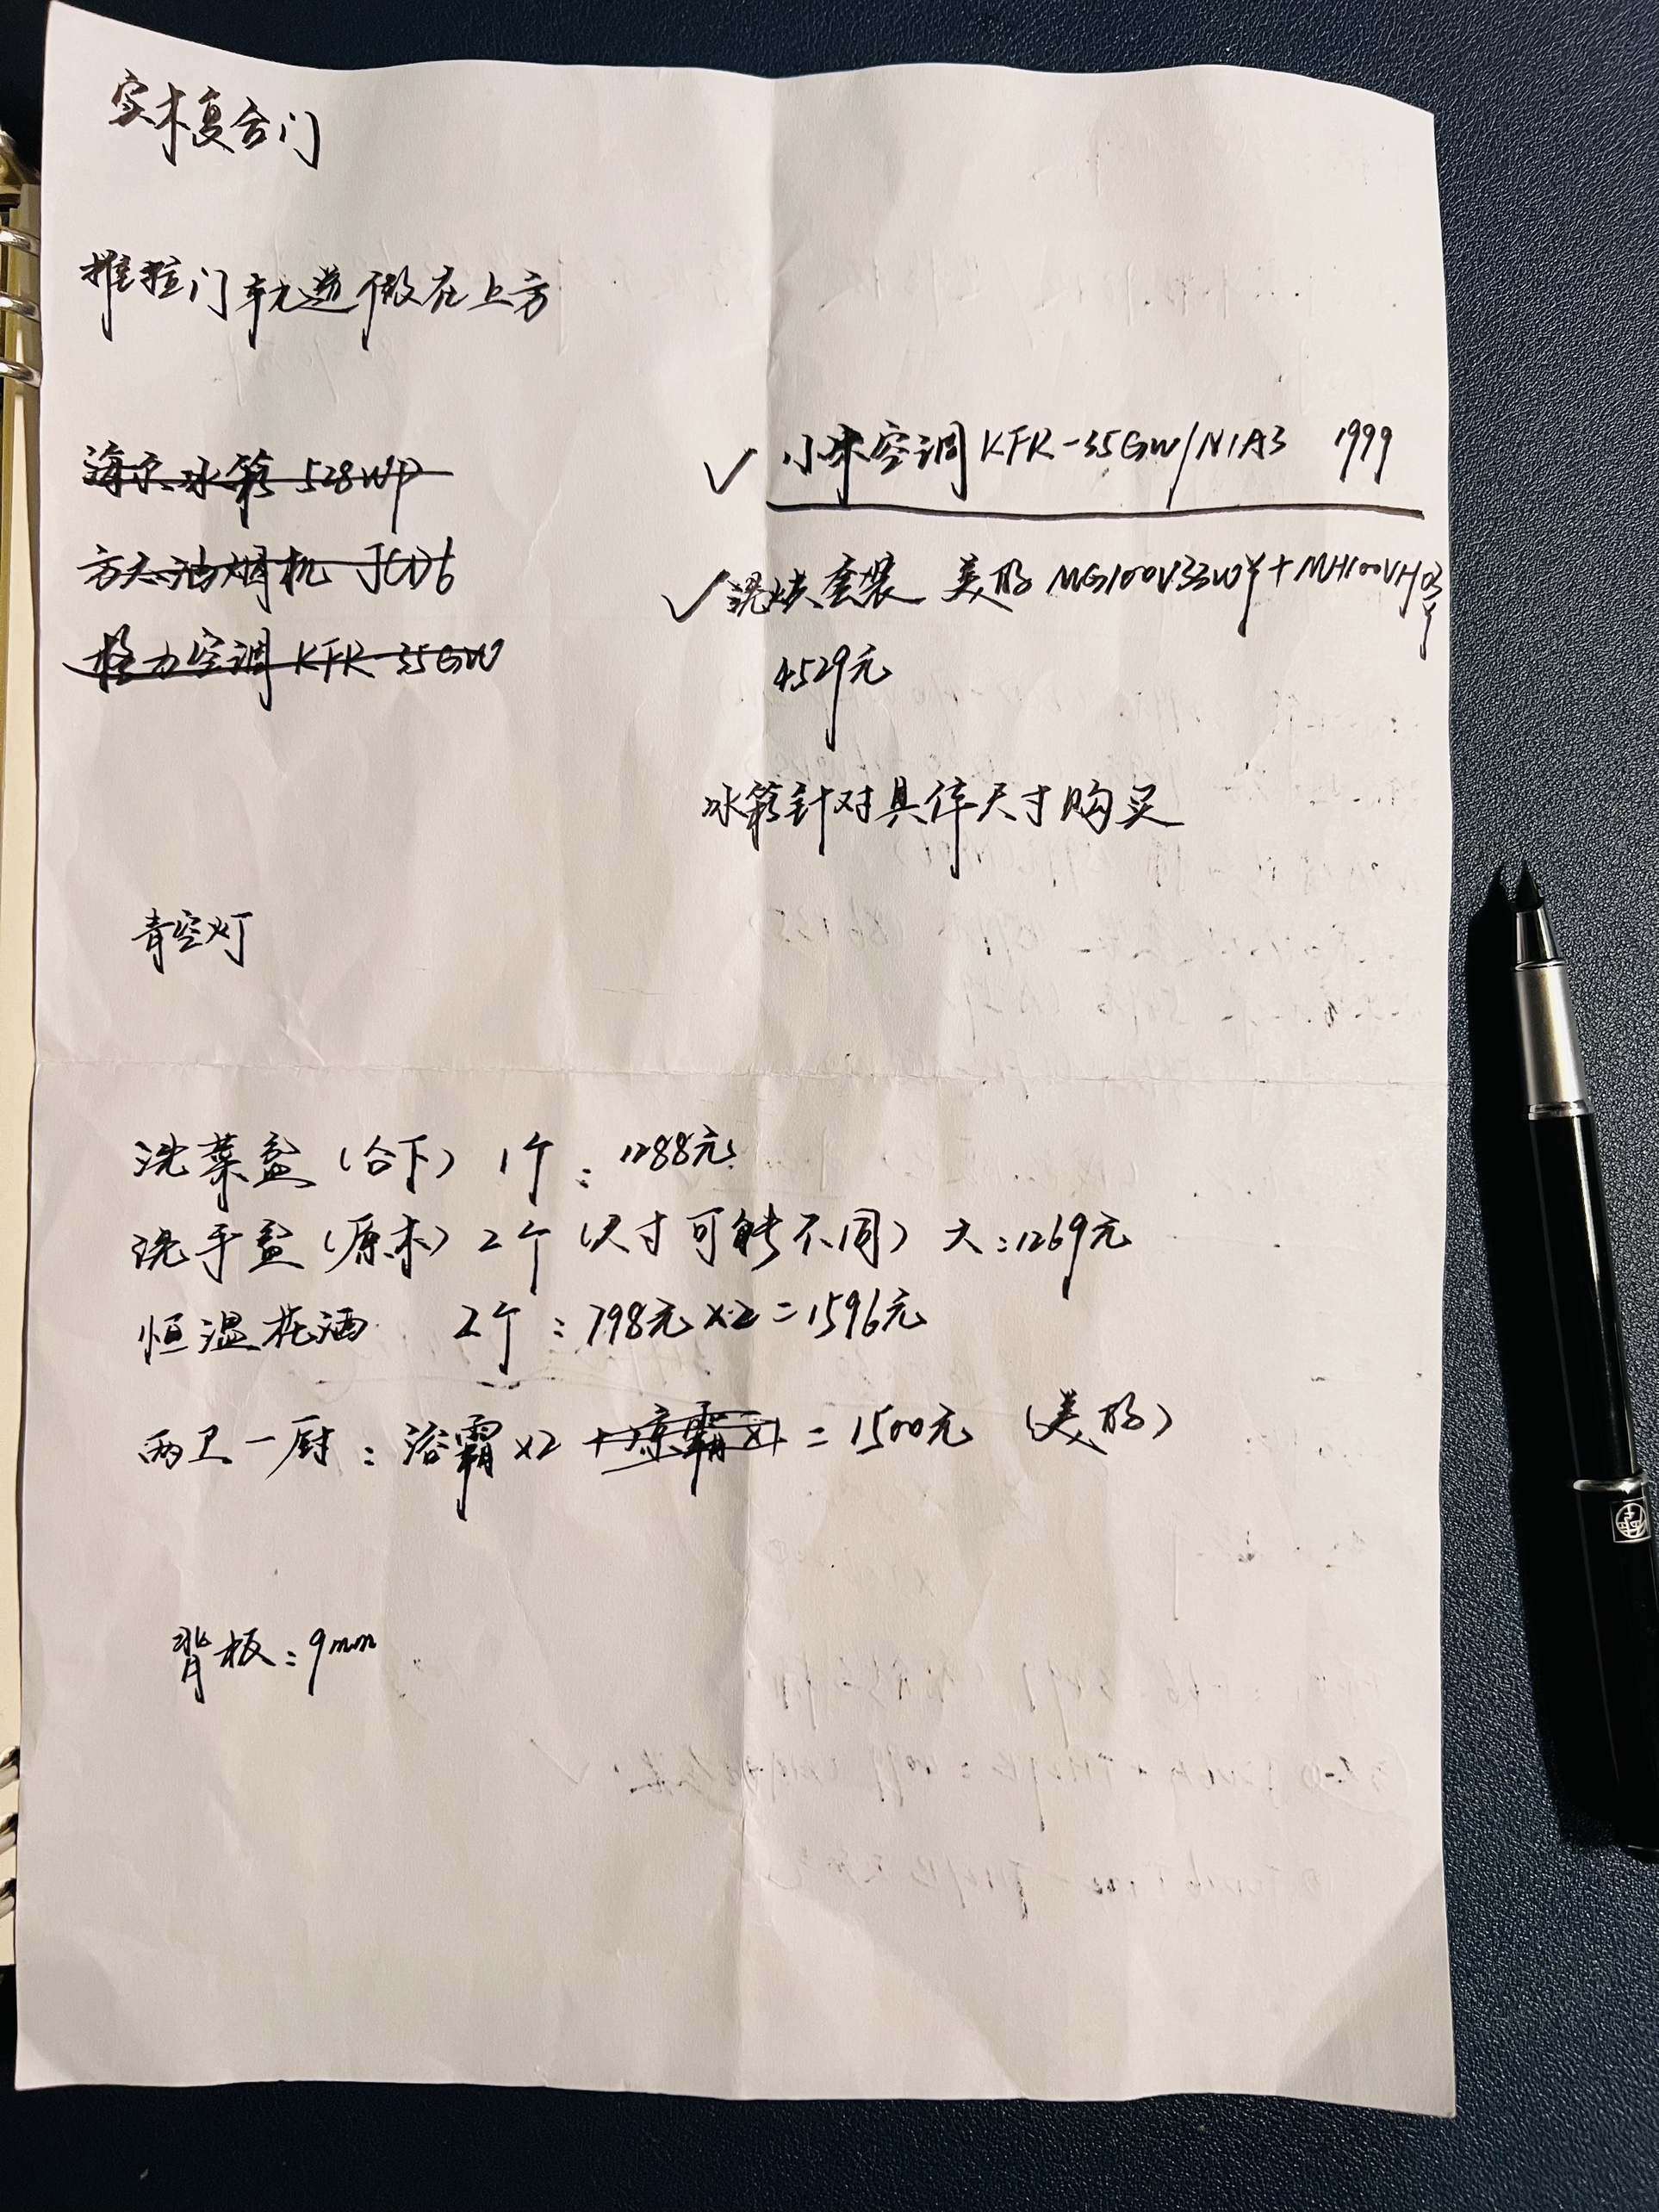 实木复合门
推拉门轨道做在上方
海尔冰箱 528WP
方太油烟机 JCD6
格力空调 KFR-35GW
✓ 小米空调 KFR-35GW/N1A3 1999
✓ 洗烘套装 美的 MG100V33WY+MH100VH03Y
4529元
冰箱针对具体尺寸购买
青空灯
洗菜盆(台下) 1个:1288元
洗手盆(原木) 2个(尺寸可能不同) 大:1269元
恒温花洒 2个:798元×2=1596元
两卫一厨:浴霸×2 +凉霸×1 = 1500元 (美的)
背板:9mm